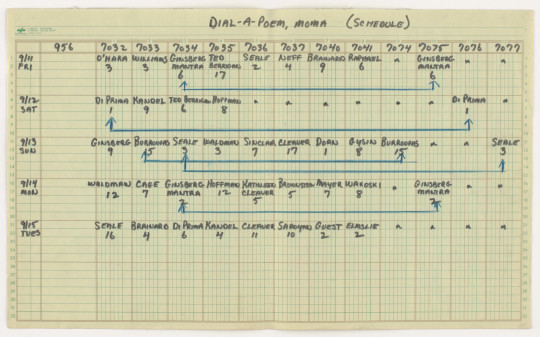 DIAL-A-POEM, MOMA (SCHEDULE)
956 7032 7033 7034 7035 7036 7037 7040 7041 7074 7075 7076 7077
9/11 O'HARA WILLIAMS GINSBERG TED SEALE NEFF BRAINARD RAPHAEL " GINSBERG " "
FRI 3 3 MANTRA BERRIGAN 2 4 9 6 MANTRA
6 17 6
9/12 DI PRIMA KANDEL TED BERRIGAN HOFFMAN " " " " " " DI PRIMA "
SAT 1 9 6 8 1
9/13 GINSBERG BURROUGHS SEALE WALDMAN SINCLAIR CLEAVER DOAN GYSIN BURROUGHS " " SEALE
SUN 9 15 3 3 7 17 1 8 15 3
9/14 WALDMAN CAGE GINSBERG HOFFMAN KATHLEEN BROWNSTEIN MAYER WAKOSKI " GINSBERG " "
MON 12 7 MANTRA 12 CLEAVER 5 7 8 MANTRA
2 5 2
9/15 SEALE BRAINARD DI PRIMA KANDEL CLEAVER SAROYAN GUEST ELMSLIE " " " "
TUES 16 4 6 4 11 10 2 2